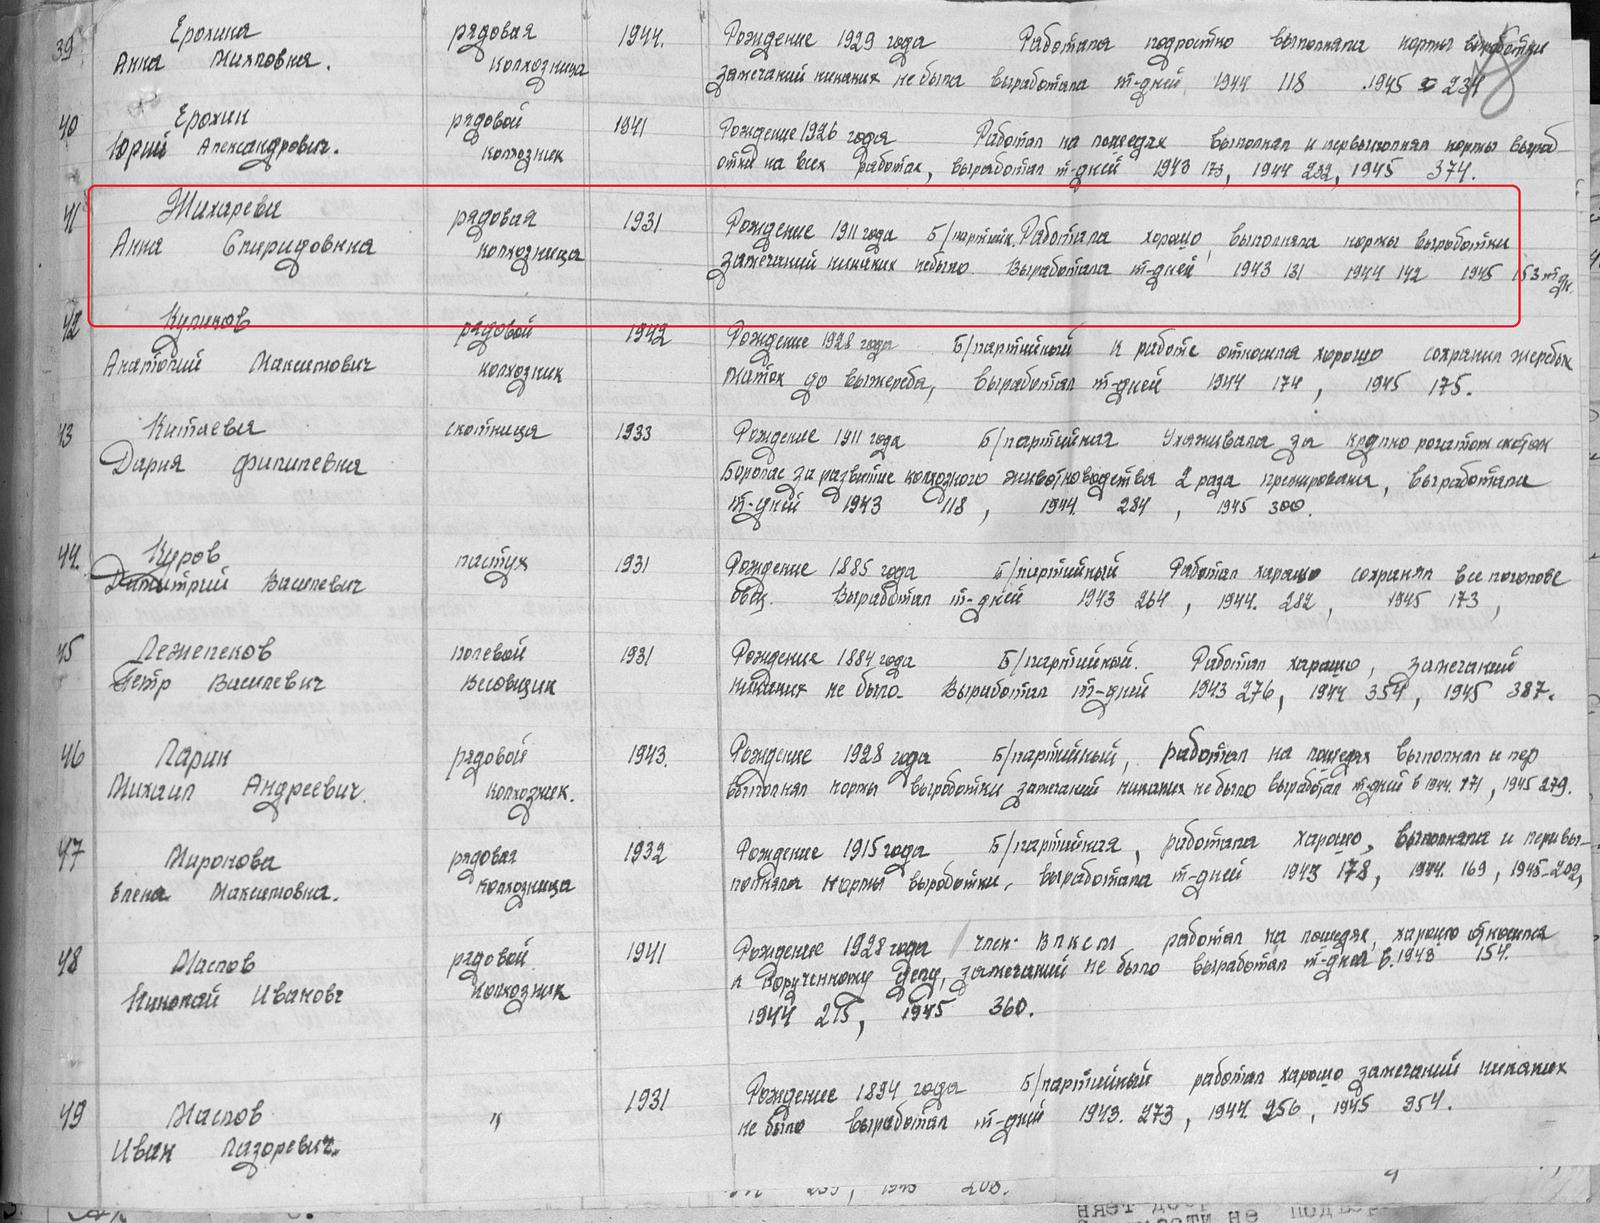 39 Ерохина рядовая 1944. Рождение 1929 года Работала подростко выполняла нормы выработки
Анна Михповна. колхозница замечаний никаких не была выработала т-дней 1944 118 .1945 234
40 Ерохин рядовой 1941 Рождение 1926 года Работал на лошедях выполнял и первыполнял нормы выраб
Юрий Александрович. колхозник отки на всех работах, выработал т-дней 1943 173, 1944 232, 1945 374.
41 Жихарева рядовая 1931 Рождение 1911 года Б/партийн. Работала хорошо, выполняла нормы выработки
Анна Спиридовна колхозница замечаний никаких небыло. Выработала т-дней 1943 131 1944 142 1945 153 т-дн.
42 Куликов рядовой 1942 Рождение 1928 года Б/партийный к работе относился хорошо сохранил жеребых
Анатолий Максимович колхозник маток до выжереба, выработал т-дней 1944 174, 1945 175.
43 Китаева скотница 1933 Рождение 1911 года Б/партийная Ухаживала за крупно рогатом скотом
Дария Филиповна Боролас за развитие колхозного животноводства 2 раза премирована, выработала
т-дней 1943 118, 1944. 284, 1945 300.
44. Куров пастух 1931 Рождение 1885 года Б/партийный Работал харашо сохранял все поголове
Димитрий Василевич овец. Выработал т-дней 1943 264, 1944. 282, 1945 173,
45 Лежепеков полевой 1931 Рождение 1884 года Б/партийный. Работал харашо, замечаний
Петр Василевич Весовщик никаких не было. Выработал т-дней 1943 276, 1944 354, 1945 387.
46 Ларин рядовой 1943. Рождение 1928 года Б/партийный, работал на лошедях выполнял и пер
Михаил Андреевич. колхозник. выполнял нормы выработки замечаний никаких не было выработал т-дней в 1944. 171, 1945 279.
47 Миронова рядовая 1932 Рождение 1915 года Б/партийная, работала харашо, выполняла и перивы-
Елена Максимовна. колхозница полняла нормы выроботки, выработала т-дней 1943 178, 1944. 169, 1945-202,
48 Маслов рядовой 1941 Рождение 1928 года член ВЛКСМ работал на лошедях, харашо относился
Николай Ивановч колхозник к Порученному делу, замечаний не было выработал т-дней в. 1943 154.
1944 275, 1945 360.
49 Маслов " 1931 Рождение 1894 года Б/партийный работал харашо замечаний никаких
Иван Лазоревич. не было выработал т-дней 1943. 273, 1944 256, 1945 354.